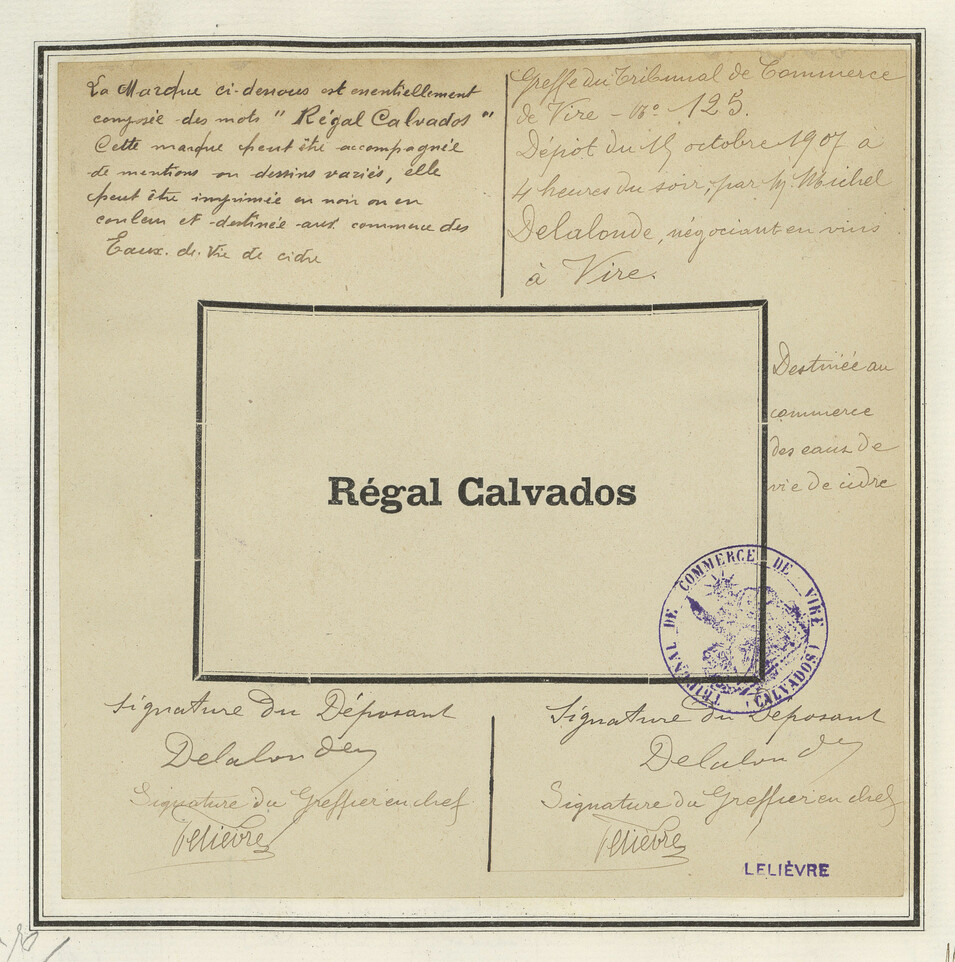 La Marque ci-dessous est essentiellement
composée des mots " Régal Calvados "
Cette marque peut être accompagnée
de mentions ou dessins variés, elle
peut être imprimée en noir ou en
couleur et destinée aux commerce des
Eaux. de. Vie de cidre
Greffe du Tribunal de Commerce
de Vire - no 125.
Dépôt du 15 octobre 1907 à
4 heures du soir, par M. Michel
Delalonde, négociant en vins
à Vire.
Destinée au
commerce
des eaux de
vie de cidre
Régal Calvados
TRIBUNAL DE COMMERCE DE VIRE (CALVADOS)
Signature du Déposant
Delalonde
Signature du Greffier en chef
Lelièvre
Signature du Déposant
Delalonde
Signature du Greffier en chef
Lelièvre
LELIÈVRE